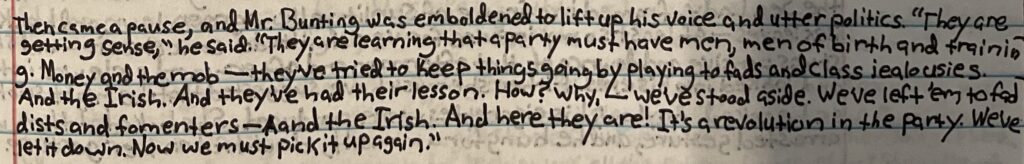 Then came a pause, and Mr. Bunting was emboldened to lift up his voice and utter politics. "They are
getting sense," he said. "They are learning that a party must have men, men of birth and trainin
g. Money and the mob—they've tried to keep things going by playing to fads and class jealousies.
And the Irish. And they've had their lesson. How? Why,—we've stood aside. We've left 'em to fad
dists and fomenters—Aand the Irish. And here they are! It's a revolution in the party. We've
let it down. Now we must pick it up again."